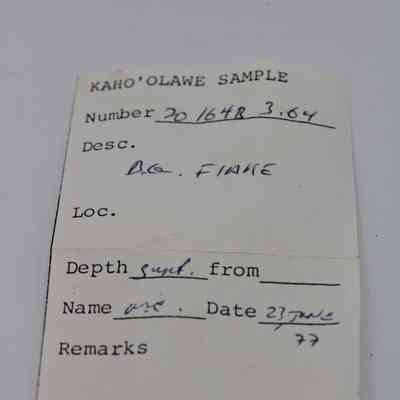 KAHO'OLAWE SAMPLE
Number 20 1648 3.64
Desc.
B.G. FLAKE
Loc.
Depth surf. from
Name Date 23 June
77
Remarks